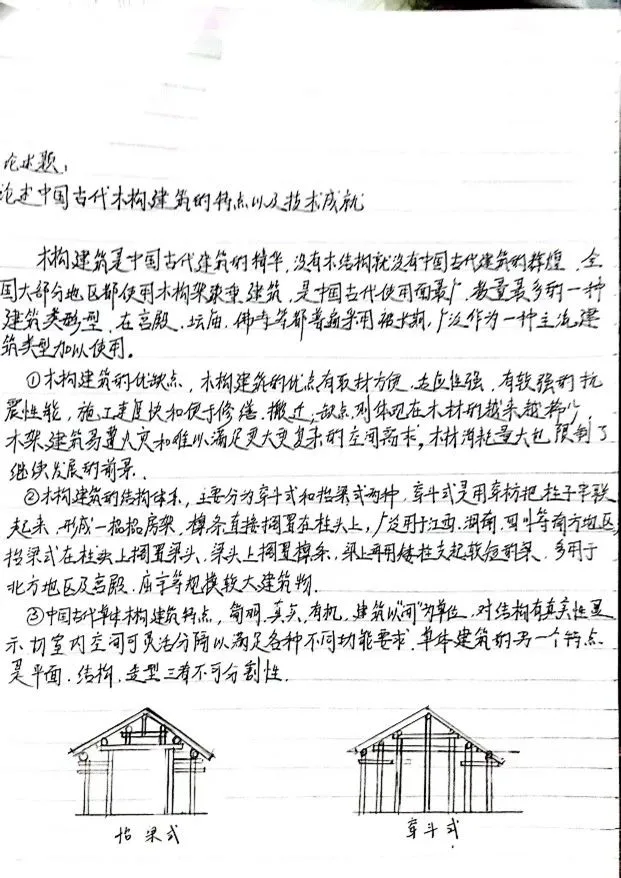 论述题:
论述中国古代木构建筑的特点以及技术成就
木构建筑是中国古代建筑的精华,没有木结构就没有中国古代建筑的辉煌,全
国大部分地区都使用木构架建筑,是中国古代使用面最广,数量最多的一种
建筑类型,在宫殿、坛庙、佛寺等都普遍采用,广泛作为一种主流建
筑类型加以使用。
①木构建筑的优缺点,木构建筑的优点有取材方便、适应性强,有较强的抗
震性能,施工速度快和便于修缮、搬迁,缺点则体现在木材的越来越稀少,
木架建筑易遭火灾和难以满足更大更复杂的空间需求,木材消耗量大也限制了
继续发展的前景。
②木构建筑的结构体系,主要分为穿斗式和抬梁式两种,穿斗式是用穿枋把柱子串联
起来,形成一榀榀房架,檩条直接搁置在柱头上,广泛用于江西、湖南、四川等南方地区,
抬梁式在柱头上搁置梁头、梁头上搁置檩条,梁上再用矮柱支起较短的梁,多用于
北方地区及宫殿、庙宇等规模较大建筑物.
③中国古代单体木构建筑特点,简明、真实、有机,建筑以"间"为单位,对结构有真实性显
示,切室内空间可灵活分隔以满足各种不同功能要求,单体建筑的另一个特点
是平面、结构、造型三者不可分割性.
抬梁式
穿斗式